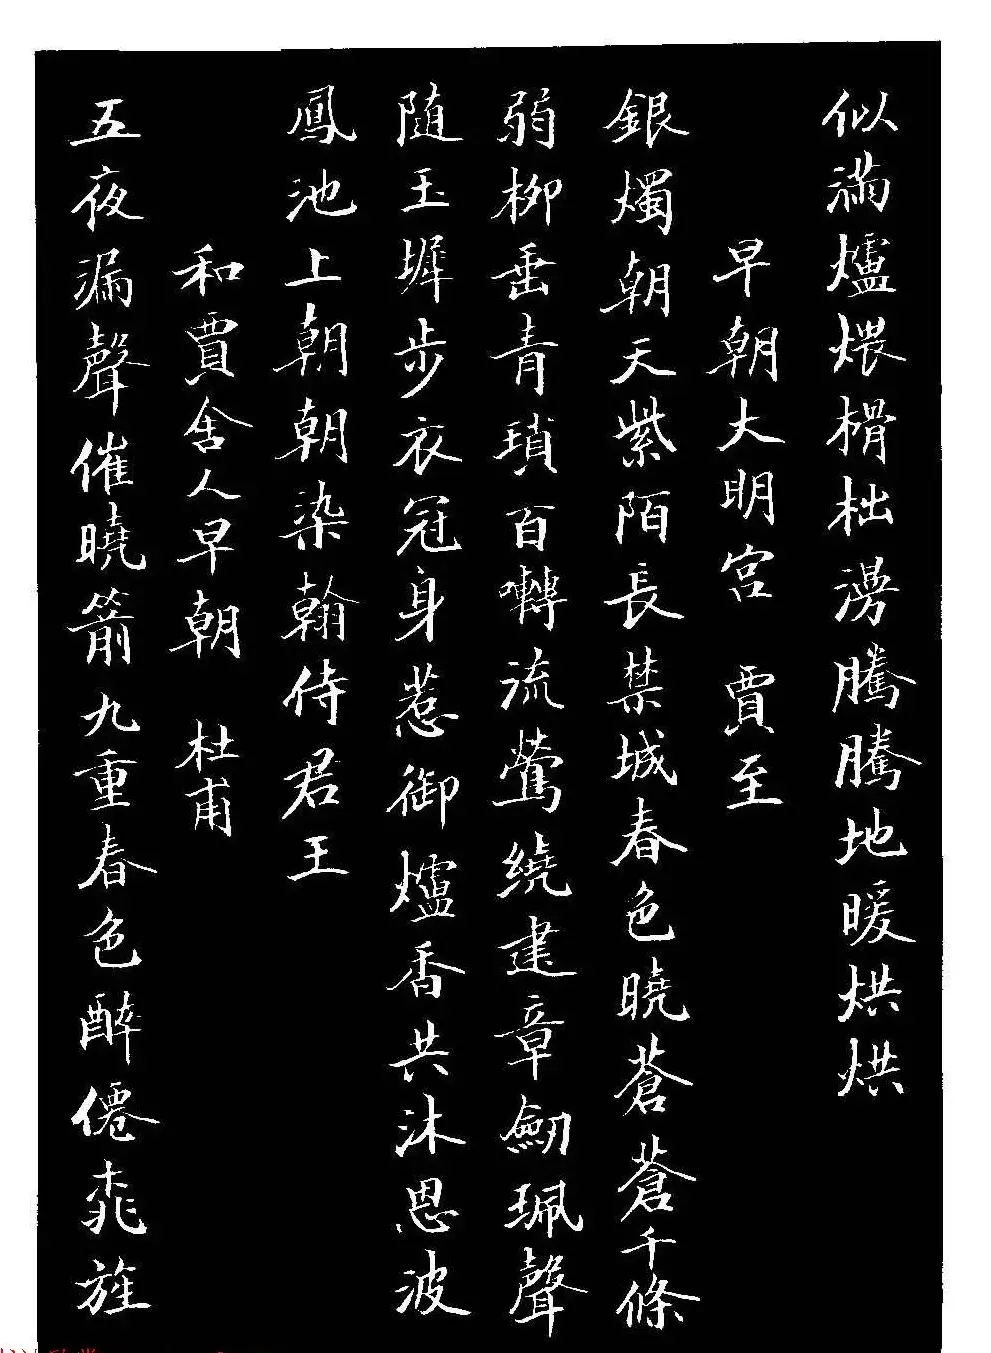 似滿爐煨榾柮湯騰騰地暖烘烘
早朝大明宮 賈至
銀燭朝天紫陌長禁城春色曉蒼蒼千條
弱柳垂青瑣百囀流鶯繞建章劒珮聲
随玉墀步衣冠身惹御爐香共沐恩波
鳳池上朝朝染翰侍君王
和賈舍人早朝 杜甫
五夜漏聲催曉箭九重春色醉僊桃旌